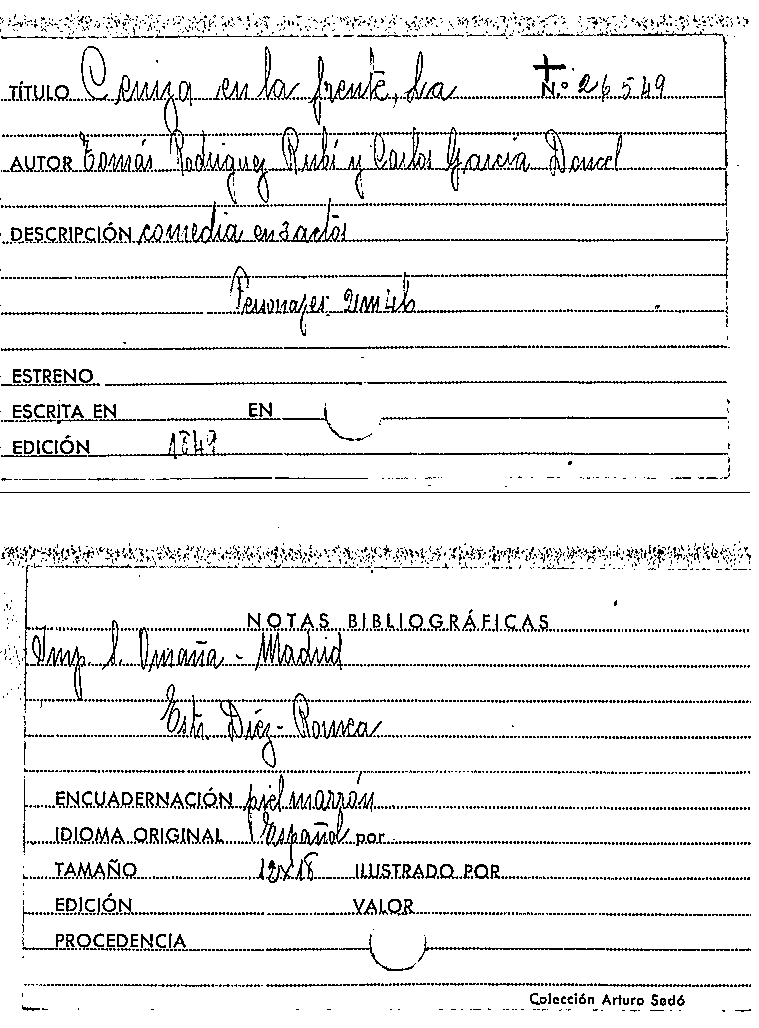 TÍTULO Ceniza en la frente, La N.º 26549
AUTOR Tomás Rodriguez Rubí y Carlos García Doncel
DESCRIPCIÓN comedia en 3 actos
Personajes: 2m 4h
ESTRENO
ESCRITA EN EN
EDICIÓN 1849
NOTAS BIBLIOGRÁFICAS
Imp. S. Omaña - Madrid
Estr. Díez-
ENCUADERNACIÓN piel marrón
IDIOMA ORIGINAL Español por
TAMAÑO 12x18 ILUSTRADO POR
EDICIÓN VALOR
PROCEDENCIA
Colección Arturo Sedó